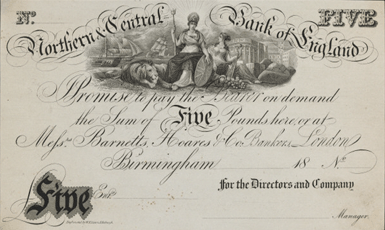 Nº FIVE
Northern & Central Bank of England
I Promise to pay the Bearer on demand
the Sum of Five Pounds here, or at
Messrs. Barnetts, Hoares & Co. Bankers, London
Birmingham 18 Nº
For the Directors and Company
Five Entd.
Manager.